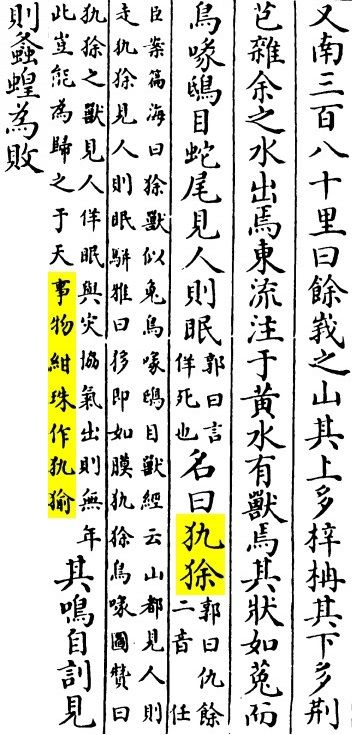 又南三百八十里曰餘峩之山其上多梓枬其下多荆
芑雜余之水出焉東流注于黃水有獸焉其狀如菟而
鳥喙鴟目蛇尾見人則眠
郭曰言
佯死也
名曰犰狳
郭曰仇餘
二音 任
臣案篇海曰狳獸似兔鳥喙鴟目獸經云山都見人則
走犰狳見人則眠駢雅曰即如膜犰狳鳥喙圖贊曰
犰狳之獸見人佯眠與灾協氣出則無年
此豈能為歸之于天事物紺珠作犰㺄
其鳴自訓見
則螽蝗為敗